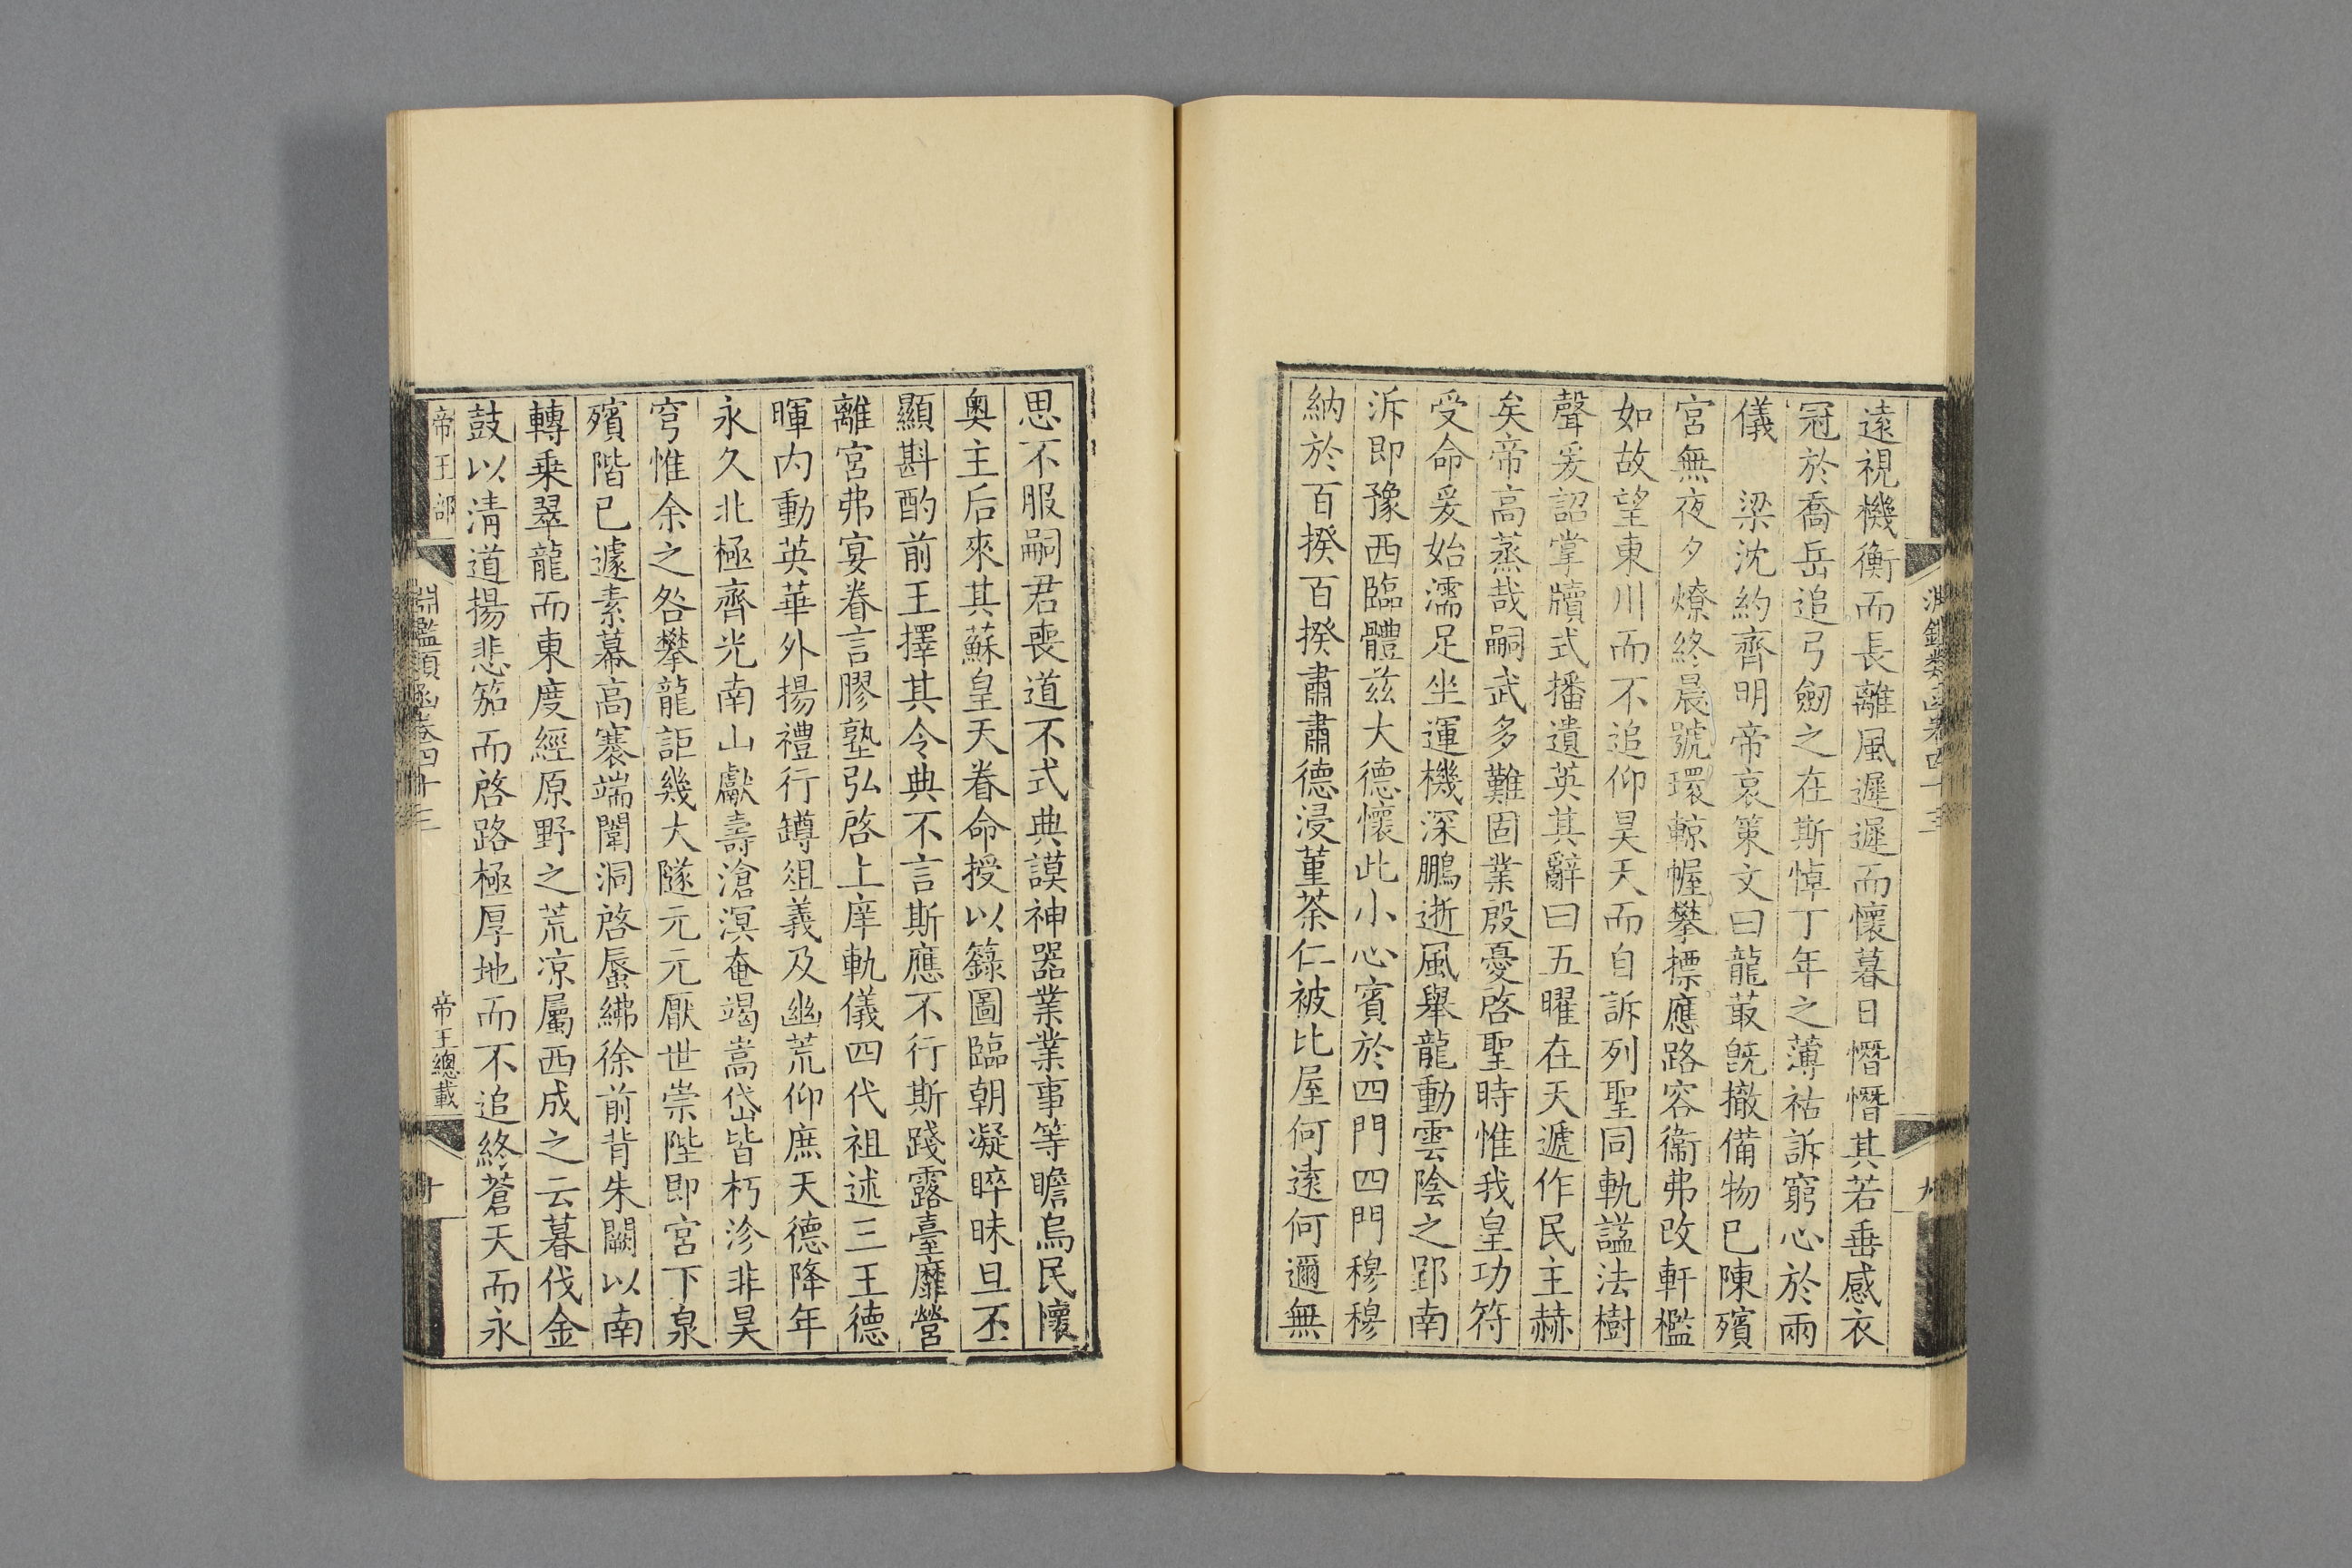 淵鑑類函卷四十三
九
遠視機衡而長離風遲遲而懷暮日憯憯其若垂感衣
冠於喬岳追弓劒之在斯悼丁年之薄祜訴窮心於兩
儀　梁沈約齊明帝哀策文曰龍菆旣撤備物巳陳殯
宮無夜夕燎終晨號環輬幄攀摽應路容衞弗改軒檻
如故望東川而不追仰昊天而自訴列聖同軌諡法樹
聲爰詔掌牘式播遺英其辭曰五曜在天遞作民主赫
矣帝高蒸哉嗣武多難固業殷憂啓聖時惟我皇功符
受命爰始濡足坐運機深鵬逝風舉龍動雲陰之郢南
泝即豫西臨體茲大德懷此小心賓於四門四門穆穆
納於百揆百揆肅肅德浸菫荼仁被比屋何遠何邇無
思不服嗣君喪道不式典謨神器業業事等瞻烏民懷
奧主后來其蘇皇天眷命授以籙圖臨朝凝晬昧旦丕
顯斟酌前王擇其令典不言斯應不行斯踐露臺靡營
離宮弗宴眷言膠塾弘啓上庠軌儀四代祖述三王德
暉內動英華外揚禮行罇俎義及幽荒仰庶天德降年
永久北極齊光南山獻壽滄溟奄竭嵩岱皆朽沴非昊
穹惟余之咎攀龍詎幾大隧元元厭世崇陛即宮下泉
殯階已遽素幕高褰端闈洞啓蜃紼徐前背朱闕以南
轉乗翠龍而東度經原野之荒凉屬西成之云暮伐金
鼓以清道揚悲笳而啓路極厚地而不追終蒼天而永
帝王部
淵鑑類函卷四十三
帝王總載
十